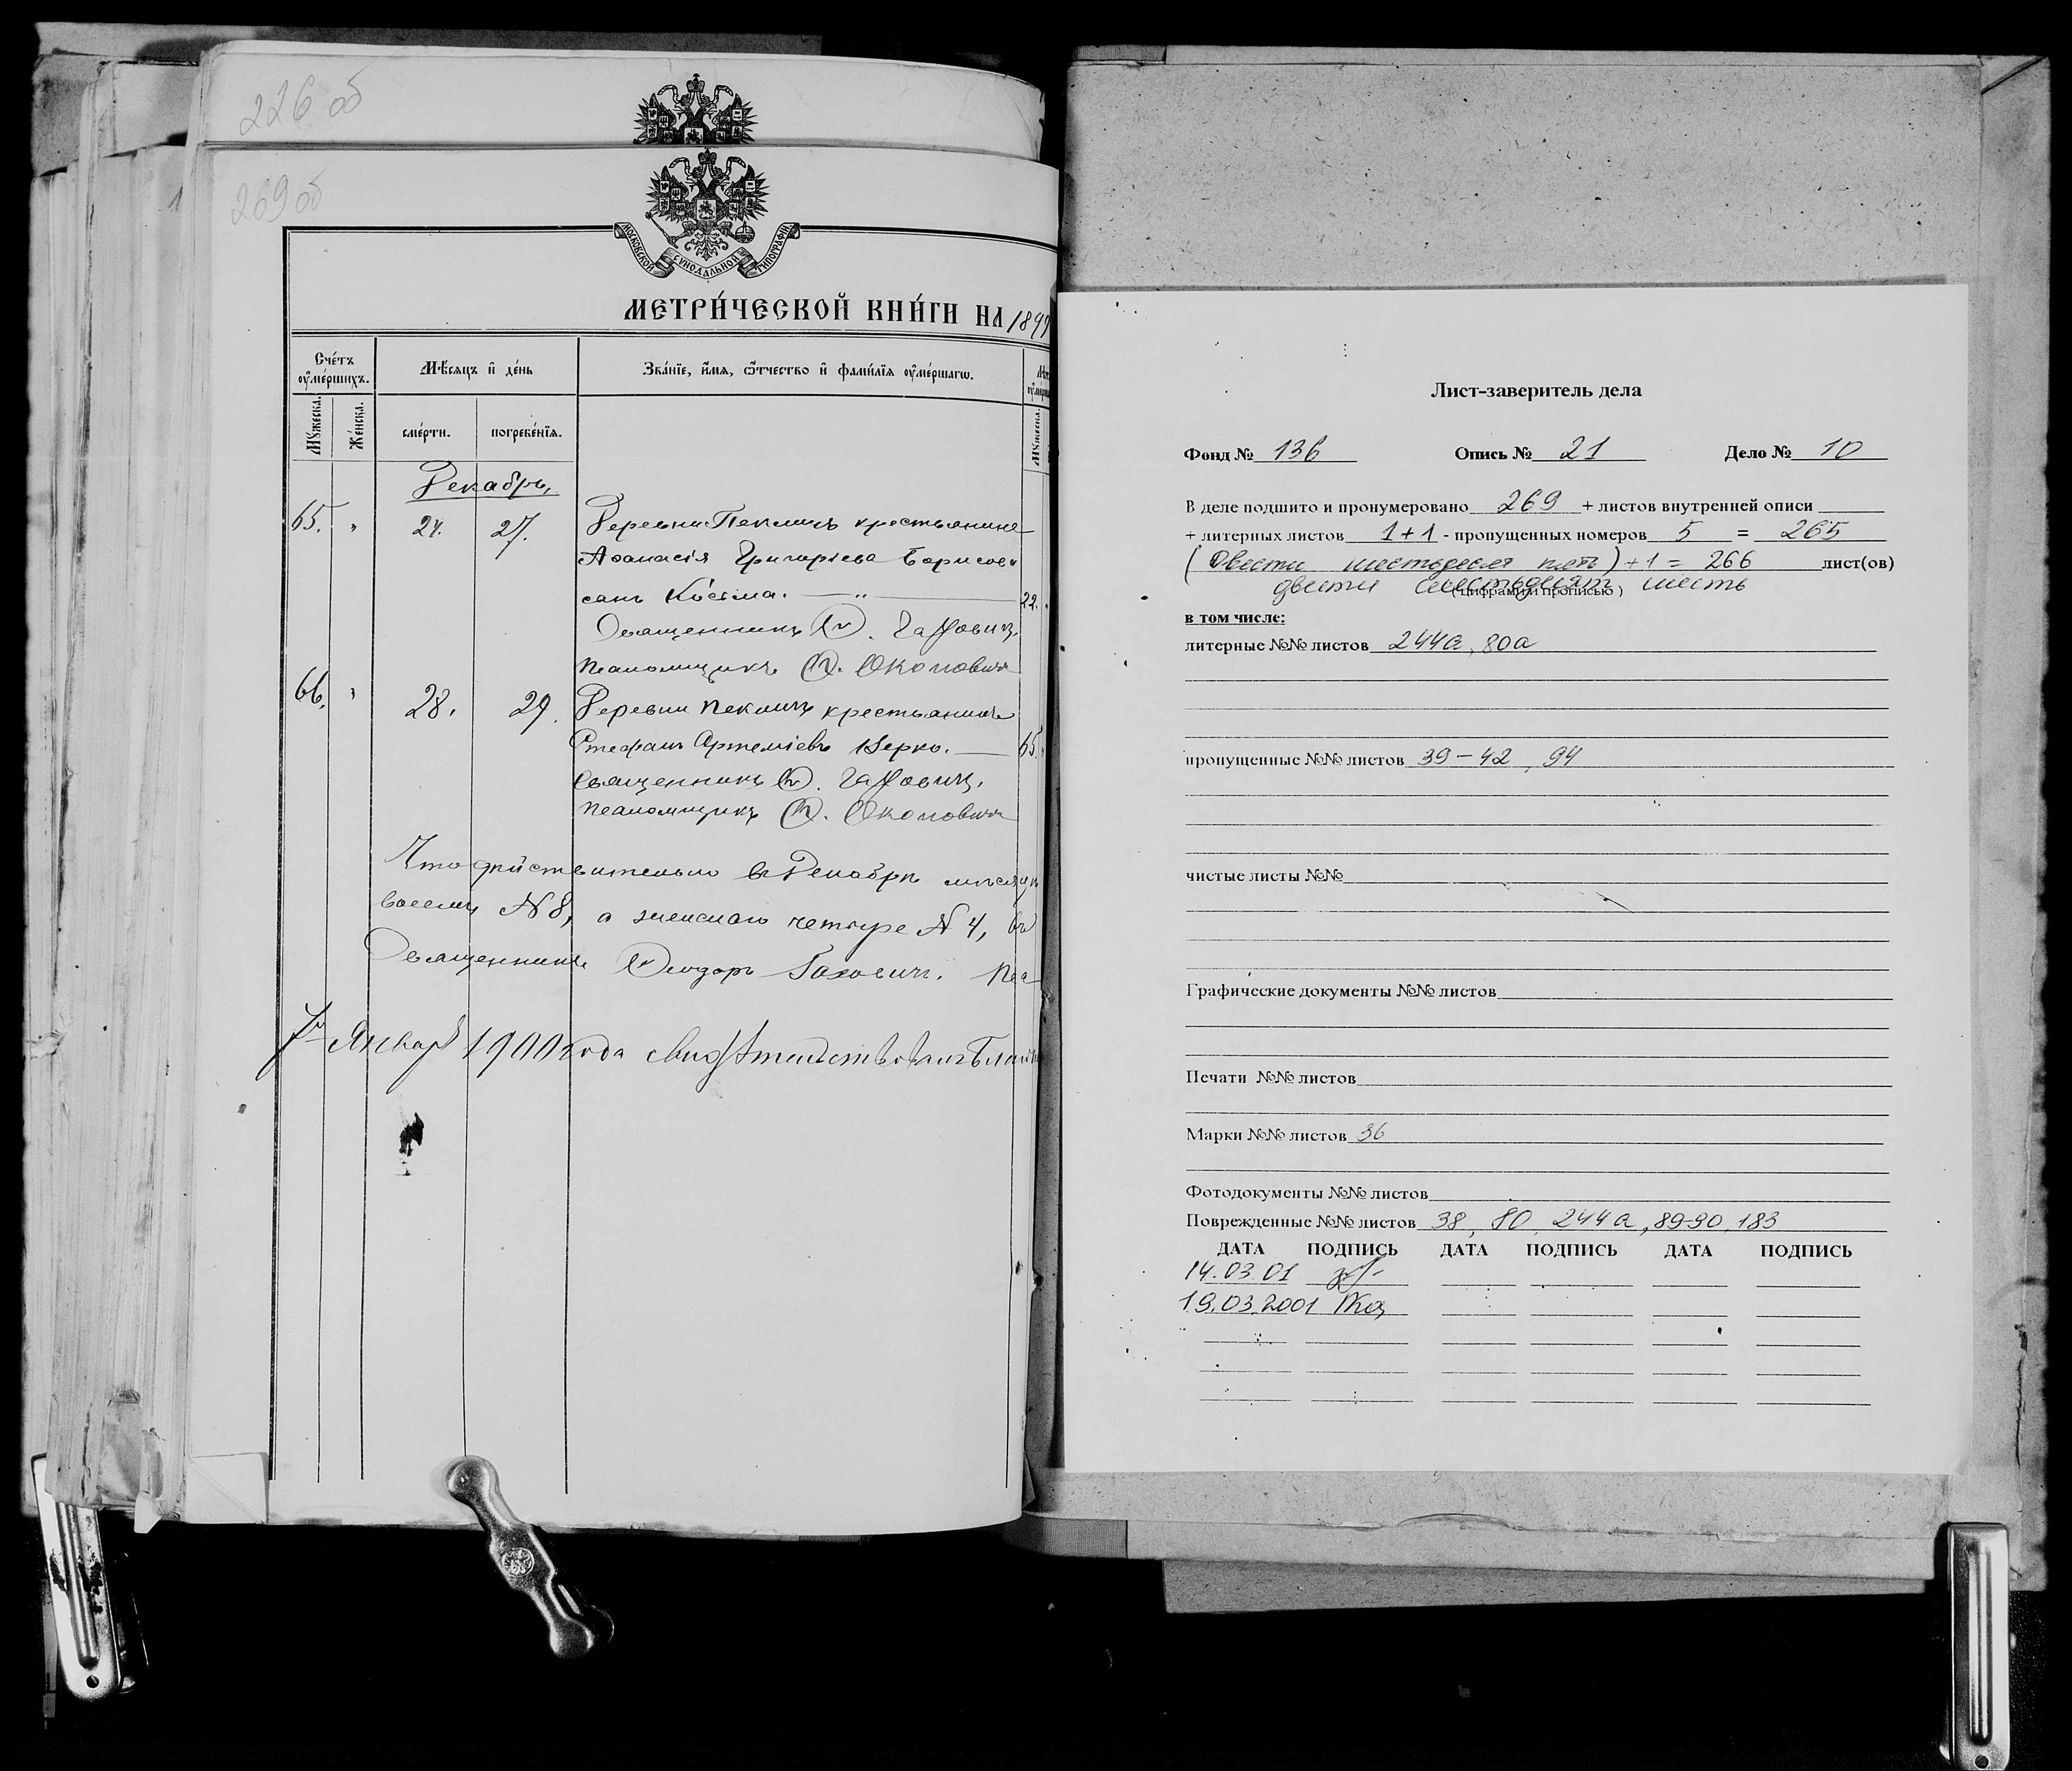 226 об
269 об
МОСКОВСКОЙ СѴНОДАЛЬНОЙ ТИПОГРАФІИ
МЕТРИ́ЧЕСКОЙ КНИ́ГИ НА 1899
Сче́тъ оу҆ме́ршихъ.
Мѣ́сяцъ и҆ де́нь
Зва́нїе, и҆́мя, ѻ҆́тчество и҆ фами́лїя оу҆ме́ршагѡ.
Мꙋ́жеска.
Же́нска.
сме́рти.
погребе́нїя.
Мꙋ́жеска.
Декабрь,
65. " 24. 27. Деревни Пекличъ крестьянина
Аѳанасія Григоріева Борисова
сынъ Косьма. — " — 22.
Священникъ Ѳ. Гахович.
Псаломщикъ Ѳ. Околовичъ
66. " 28. 29. Деревни Пекличъ крестьянинъ
Стефанъ Артеміевъ — 65.
Священникъ Ѳ. Гахович.
Псаломщикъ Ѳ. Околовичъ
Что дѣйствительно въ Декабрѣ мѣсяцѣ
восемь № 8, а женскаго четыре № 4, въ
Священникъ Ѳеодоръ Гахович. Пса
7го Января 1900 года свидѣтельствовалъ
Лист-заверитель дела
Фонд № 136 Опись № 21 Дело № 10
В деле подшито и пронумеровано 269 + листов внутренней описи
+ литерных листов 1+1 - пропущенных номеров 5 = 265
(Двести шестьдесят пять) + 1 = 266 лист(ов)
двести шестьдесят шесть
(цифрами и прописью)
в том числе:
литерные №№ листов 244а, 80а
пропущенные №№ листов 39-42, 94
чистые листы №№
Графические документы №№ листов
Печати №№ листов
Марки №№ листов 36
Фотодокументы №№ листов
Поврежденные №№ листов 38, 80, 244а, 89-90, 183
ДАТА ПОДПИСЬ ДАТА ПОДПИСЬ ДАТА ПОДПИСЬ
14.03.01
19.03.2001